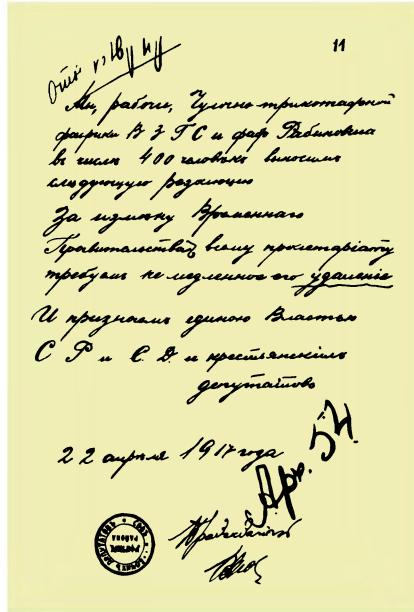 11
Мы, рабочие, Чулочно-трикотажной
фабрики В З Г С и фаб Рабиновича
въ числѣ 400 человѣкъ выносимъ
слѣдующую резолюцію
За измѣну Временнаго
Правительства всему пролетаріату
требуемъ немедленное его удаленіе
И признаемъ единою Властью
С Р и С. Д. и крестьянскихъ
депутатовъ
22 апрѣля 1917 года